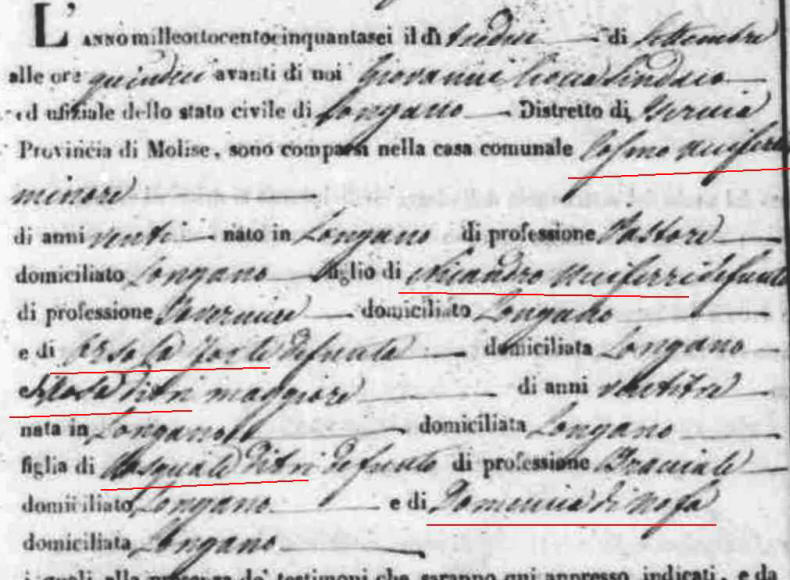 L'ANNO milleottocentocinquantasei il dì tredici di Settembre
alle ore quindici avanti di noi Giovanni Sindaco
ed ufiziale dello stato civile di Longano Distretto di Isernia
Provincia di Molise, sono comparsi nella casa comunale Cosmo
minore
di anni venti nato in Longano di professione Pastore
domiciliato Longano figlio di Nicandro defunto
di professione domiciliato Longano
e di Orsola Forte defunta domiciliata Longano
Ditri maggiore di anni ventitre
nata in Longano domiciliata Longano
figlia di Pasquale Ditri defunto di professione Braciale
domiciliato Longano e di Domenica di Nofa
domiciliata Longano
i quali alla presenza de' testimoni che saranno qui appresso indicati, e da